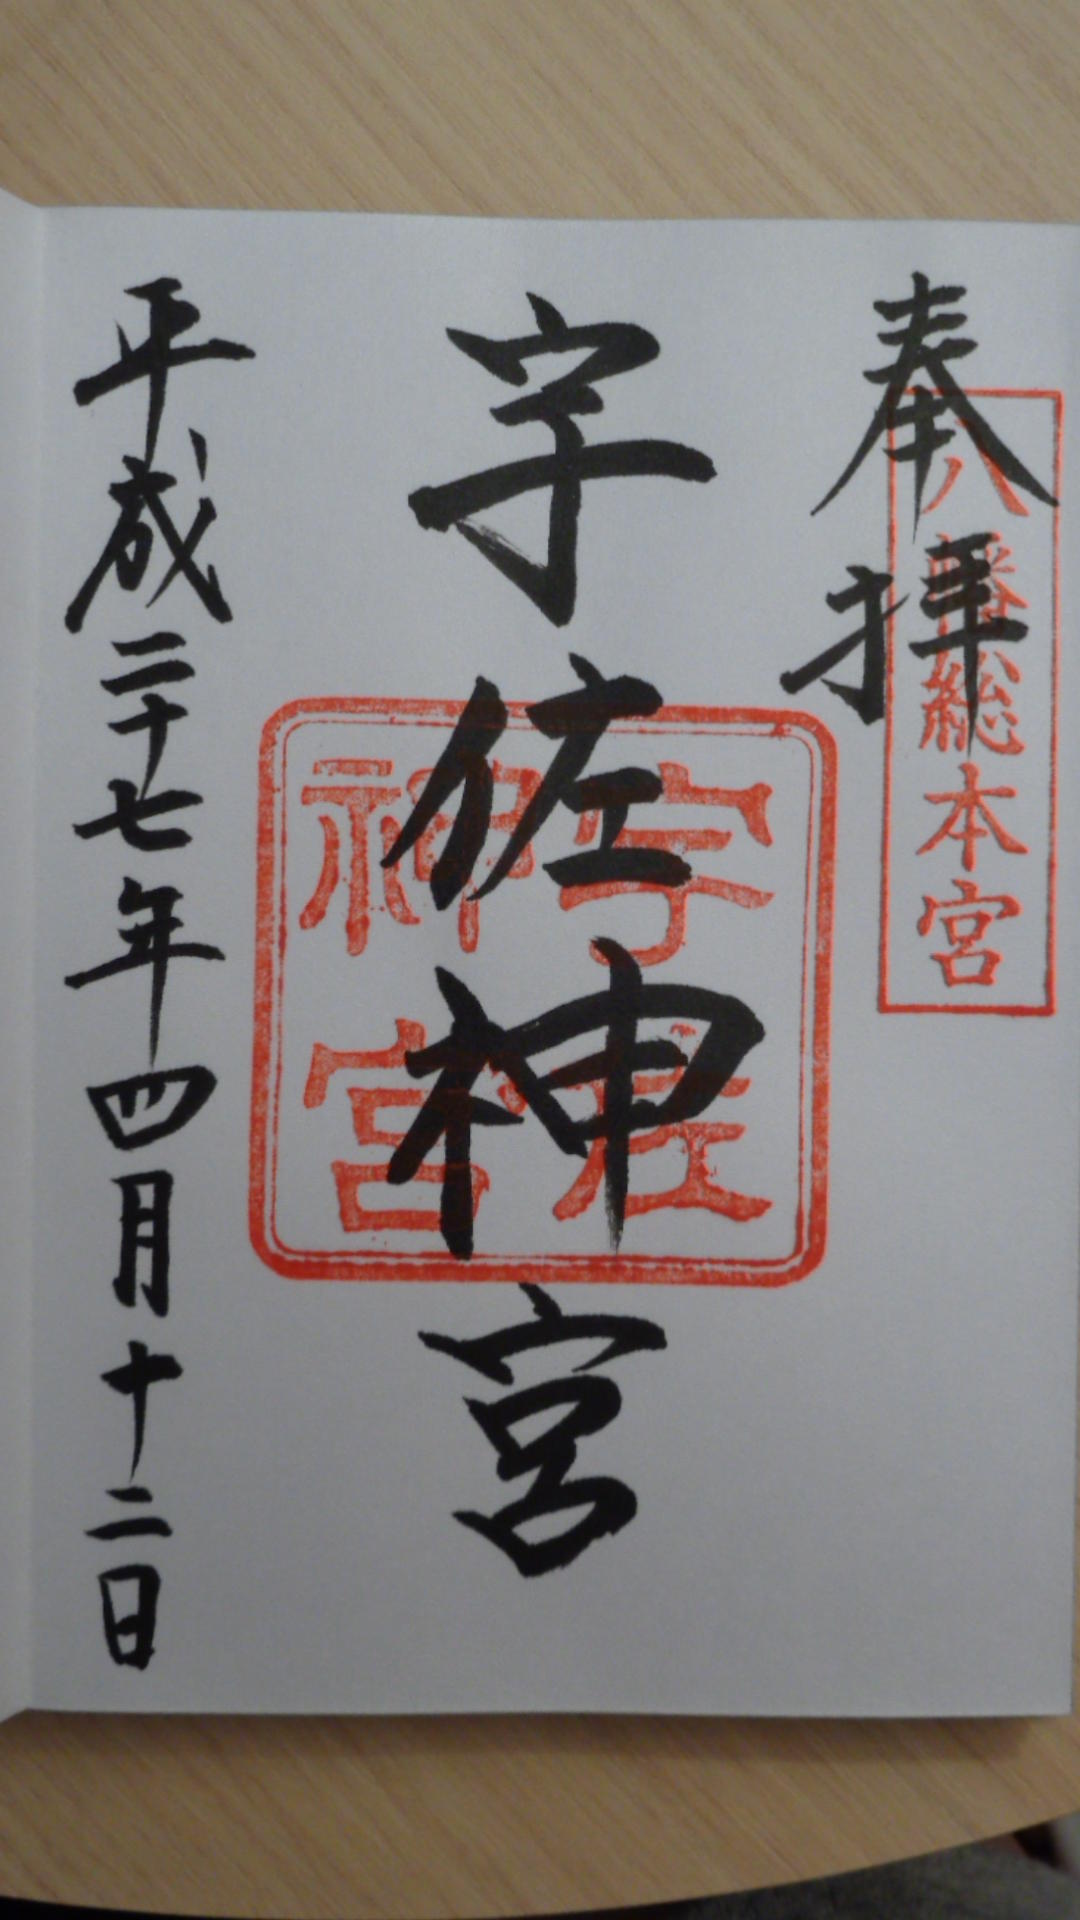 奉拝
八幡総本宮
宇佐神宮
宇佐
神宮
平成二十七年四月十二日